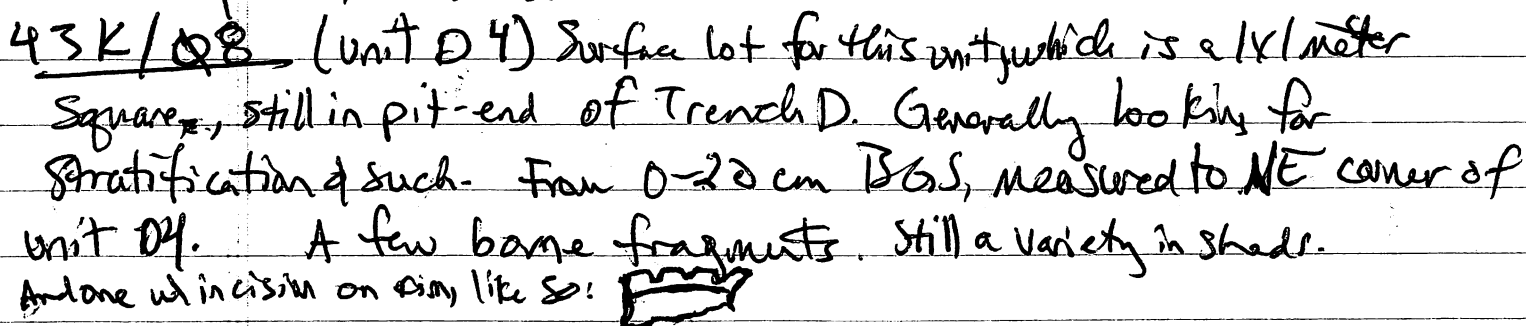 43K/Q8 (Unit D 4) Surface lot for this unit, which is a 1X1 meter
Square, still in pit-end of Trench D. Generally looking for
Stratification & such. From 0-20 cm BGS, measured to NE corner of
unit D4. A few bone fragments. Still a variety in sherds.
And one w/ incision on rim, like so: